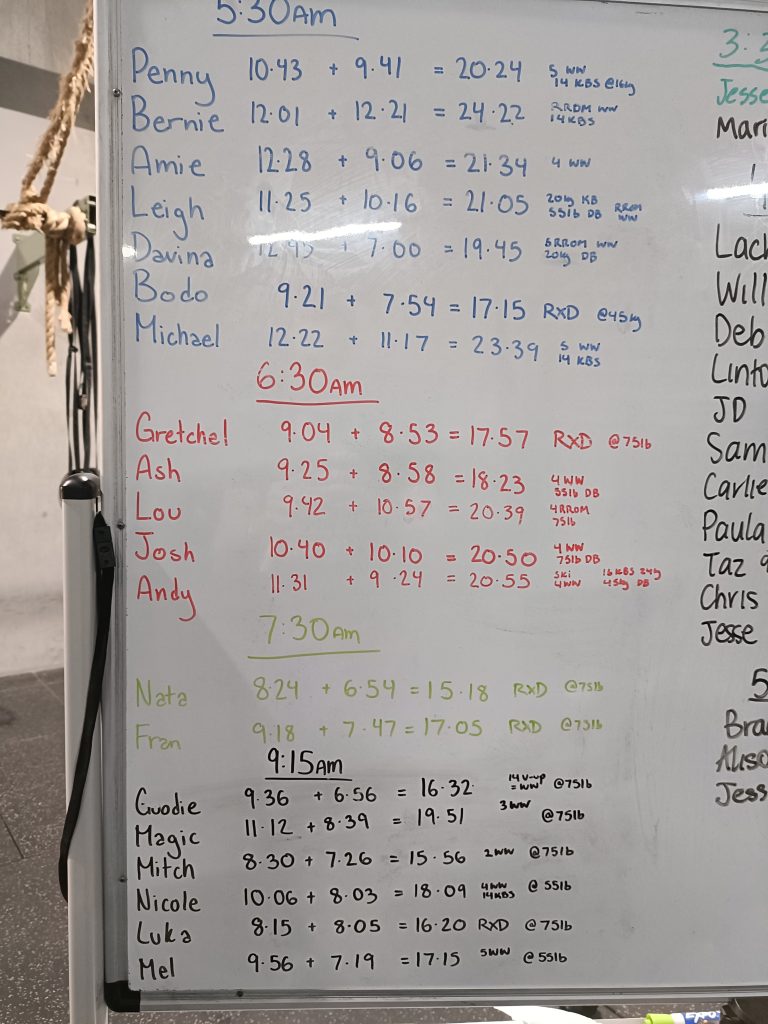 5:30AM
Penny 10.43 + 9.41 = 20.24 5 WW
14 KBS @16kg
Bernie 12.01 + 12.21 = 24.22 RRDM WW
14KBS
Amie 12.28 + 9.06 = 21.34 4 WW
Leigh 11.25 + 10.16 = 21.05 20kg KB
55lb DB RROM
WW
Davina + 7.00 = 19.45 5RROM WW
20kg DB
Bodo 9.21 + 7.54 = 17.15 RXD @45kg
Michael 12.22 + 11.17 = 23.39 5 WW
14 KBS
6:30AM
Gretchel 9.04 + 8.53 = 17.57 RXD @75lb
Ash 9.25 + 8.58 = 18.23 4 WW
55lb DB
Lou 9.42 + 10.57 = 20.39 4RROM
75lb
Josh 10.40 + 10.10 = 20.50 4 WW
75lb DB
Andy 11.31 + 9.24 = 20.55 SKi 16 KBS 24kg
4WW 45kg DB
7:30AM
Nata 8.24 + 6.54 = 15.18 RXD @75lb
Fran 9.18 + 7.47 = 17.05 RXD @75lb
9:15AM
Guodie 9.36 + 6.56 = 16.32 14 V-up
= WW @75lb
Magic 11.12 + 8.39 = 19.51 3WW @75lb
Mitch 8.30 + 7.26 = 15.56 2WW @75lb
Nicole 10.06 + 8.03 = 18.09 4WW
14KBS @ 55lb
Luka 8.15 + 8.05 = 16.20 RXD @75lb
Mel 9.56 + 7.19 = 17.15 5WW @55lb
3:2
Jesse
Mari
Lach
Will
Deb
Linto
JD
Sam
Carlie
Paula
Taz 9
Chris
Jesse
5
Bra
Aliso
Jess